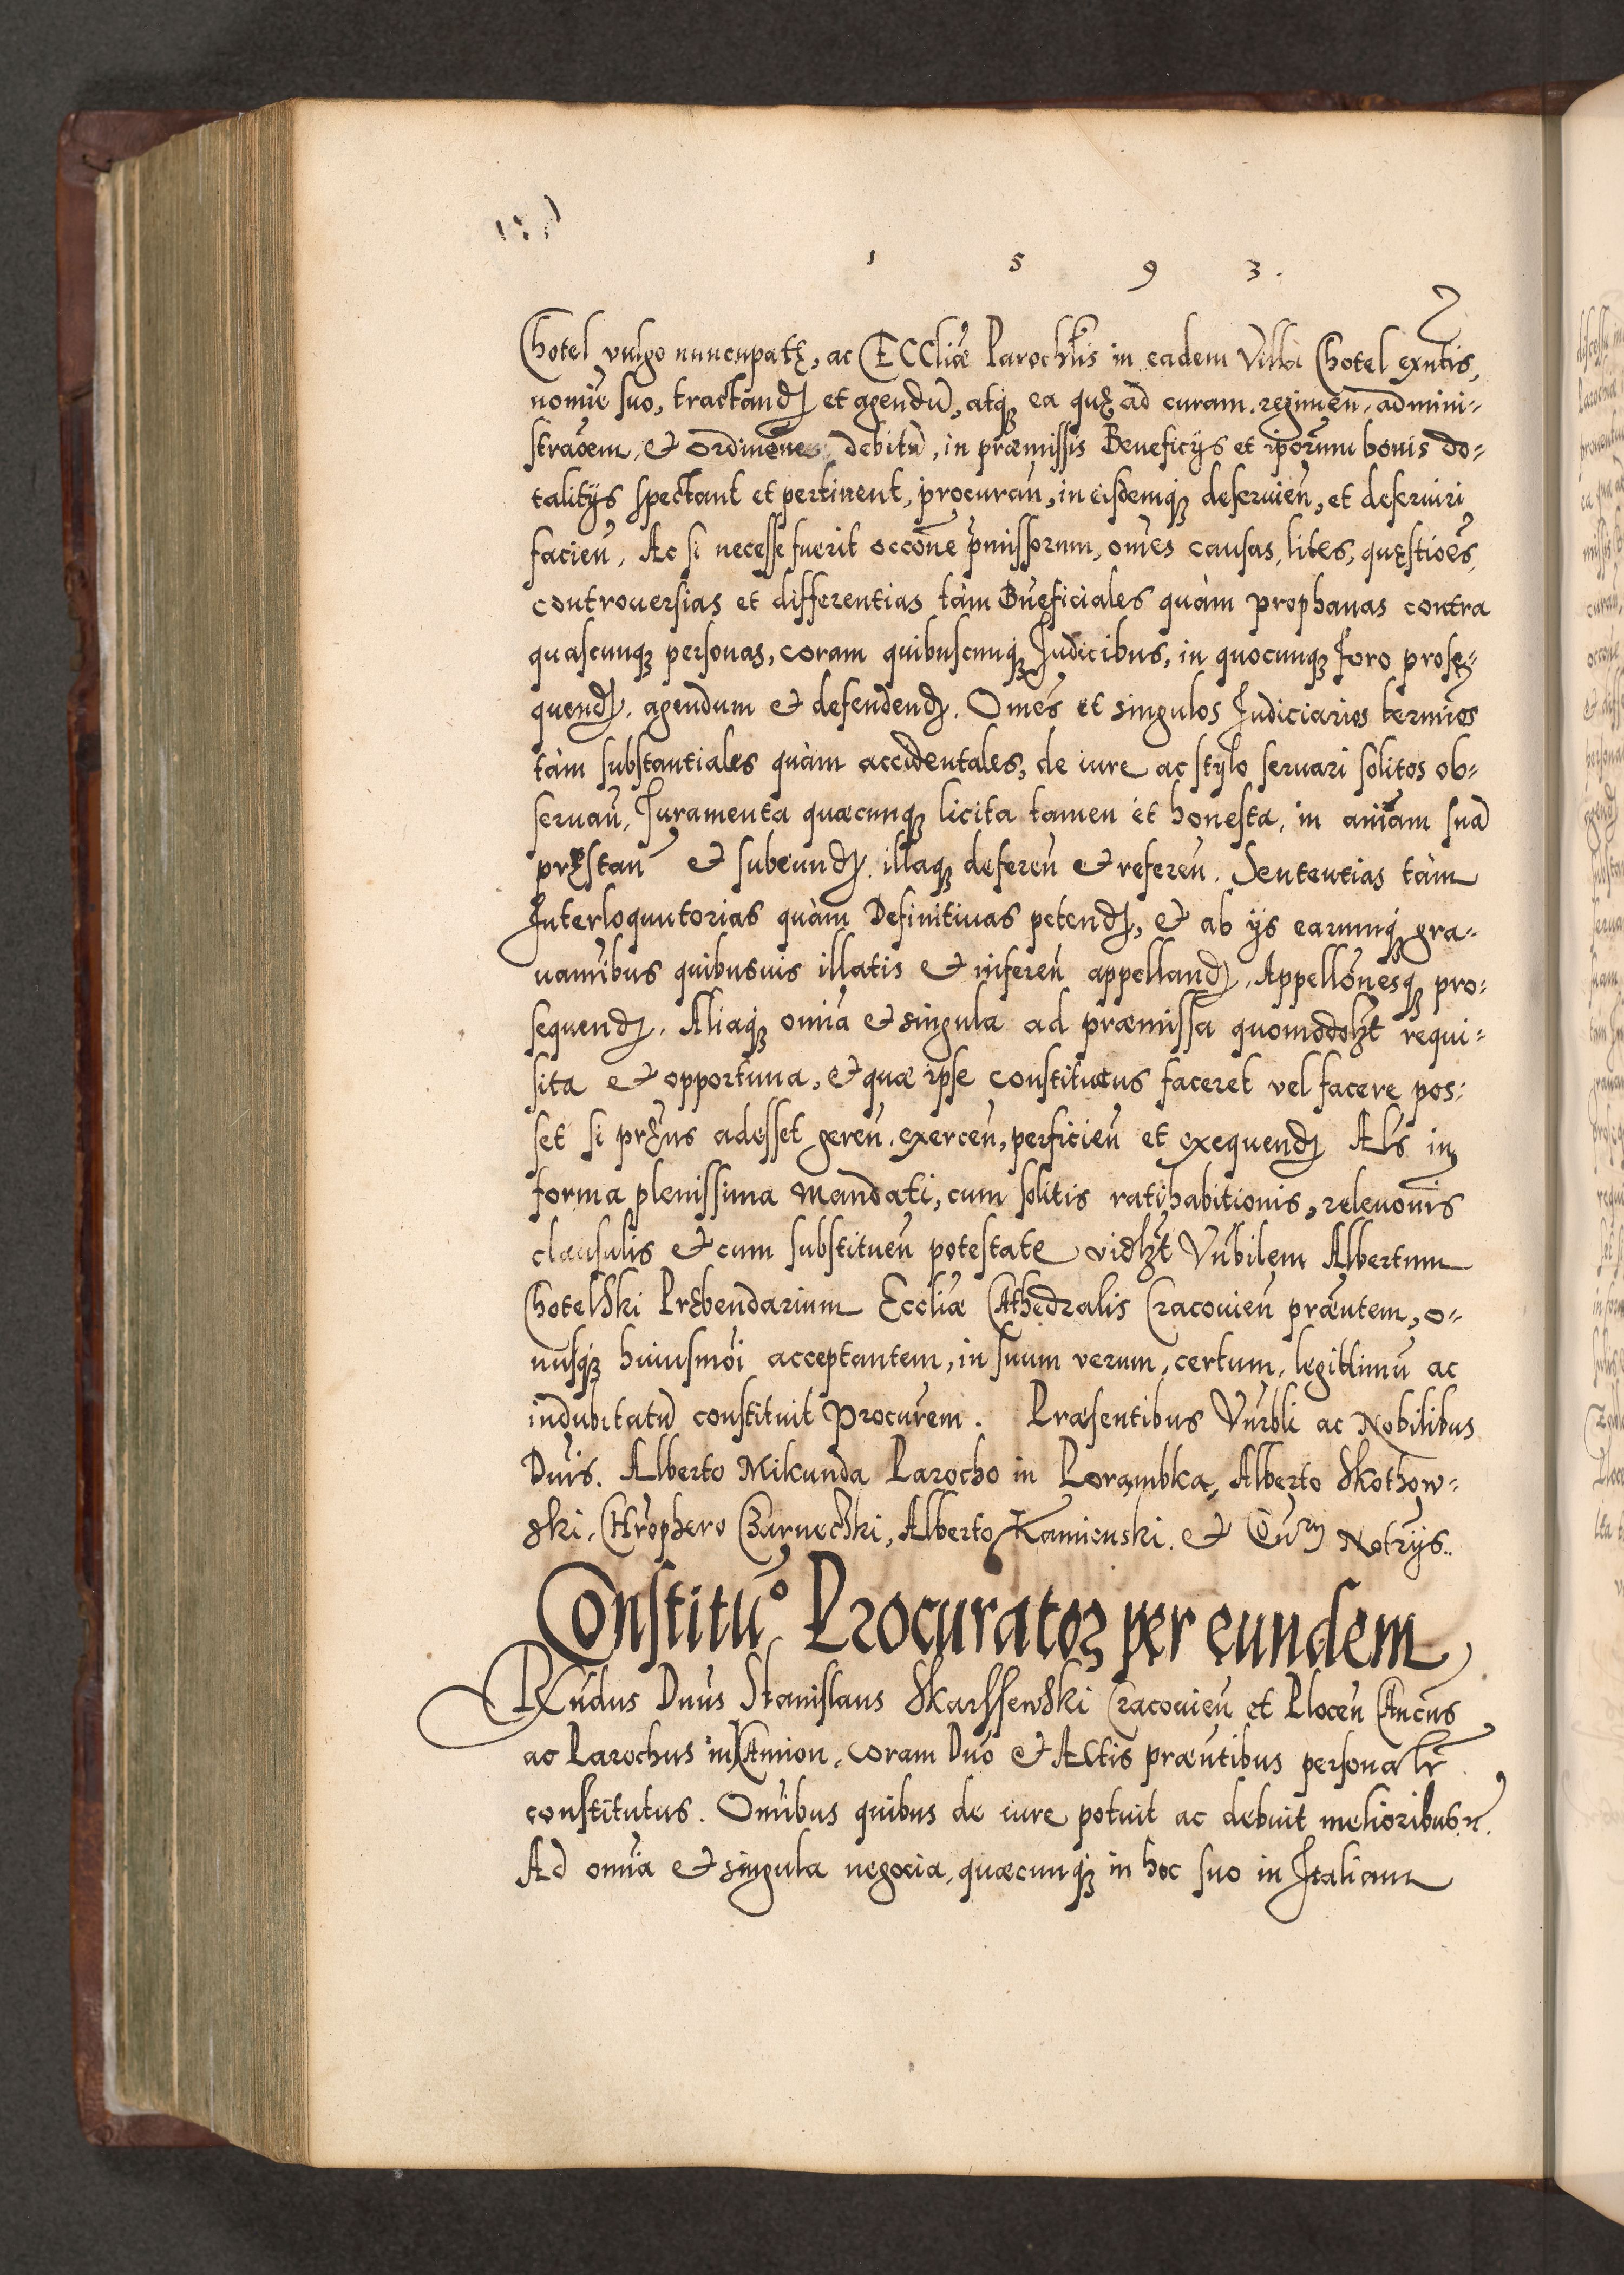 1 5 9 3.
Chotel vulgo nuncupatę, ac ECCliæ Parochlis in eadem Villa Chotel exntis,
nomīe suo, tractand et agendū, atq ea quę ad curam, regimen, admini-
straōem, et ordinōnem debitā, in præmissis Beneficijs et ipōrum bonis do-
talitijs spectant et pertinent, procuran̄, in eisdemq deseruien̄, et deseruiri
facien̄. Ac si necesse fuerit occōne p̄missorum, om̄es causas, lites, quęstiōes,
controuersias et differentias tàm Bn̄eficiales quàm prophanas contra
quascunq personas, coram quibuscunq Judicibus, in quocunq Foro prose-
quend. agendum et defendend. Om̄es et singulos Judiciarios termīos
tàm substantiales quàm accidentales, de iure ac stylo seruari solitos ob-
seruan̄, Juramenta quæcunq licita tamen et honesta, in an̄iam suā
pręstan̄ et subeund. illaq deferen̄ et referen̄. Sententias tàm
Interloquutorias quàm Definitiuas petend, et ab ijs earumq gra-
uamībus quibusuis illatis et inferen̄ appelland. Appellōnesq pro-
sequend. Aliaq om̄ia et singula ad præmissa quomodolzt requi-
sita et opportuna, et quæ ipse constitutus faceret vel facere pos-
set si pręns adesset geren̄, exercen̄, perficien̄ et exequend Als in
forma plenissima mandati, cum solitis ratihabitionis, releuōnis
clausulis et cum substituen̄ potestate vidlzt Vn̄bilem Albertum
Chotelski Prębendarium Eccliæ Cathedralis Cracouien̄ præntem, o-
nusq huiusmōi acceptantem, in suum verum, certum, legittimū ac
indubitatū constituit Procurem. Præsentibus Vn̄rbli ac Nobilibus
Dn̄is. Alberto Mikunda Parocho in Porambka, Alberto Skothow-
ski, Chrophero Czarnechki, Alberto Kamienski. et Cur Notrijs..
Constitu° Procurator per eundem
RXn̄dus Dn̄us Stanislaus Skarssewski Cracouien̄ et Plocen̄ Cancus
ac Parochus in Kamion, coram Dn̄o et Actis præntibus personalr
constitutus. Om̄ibus quibus de iure potuit ac debuit melioribus
Ad om̄ia et singula negocia, quæcunq in hoc suo in Italiam